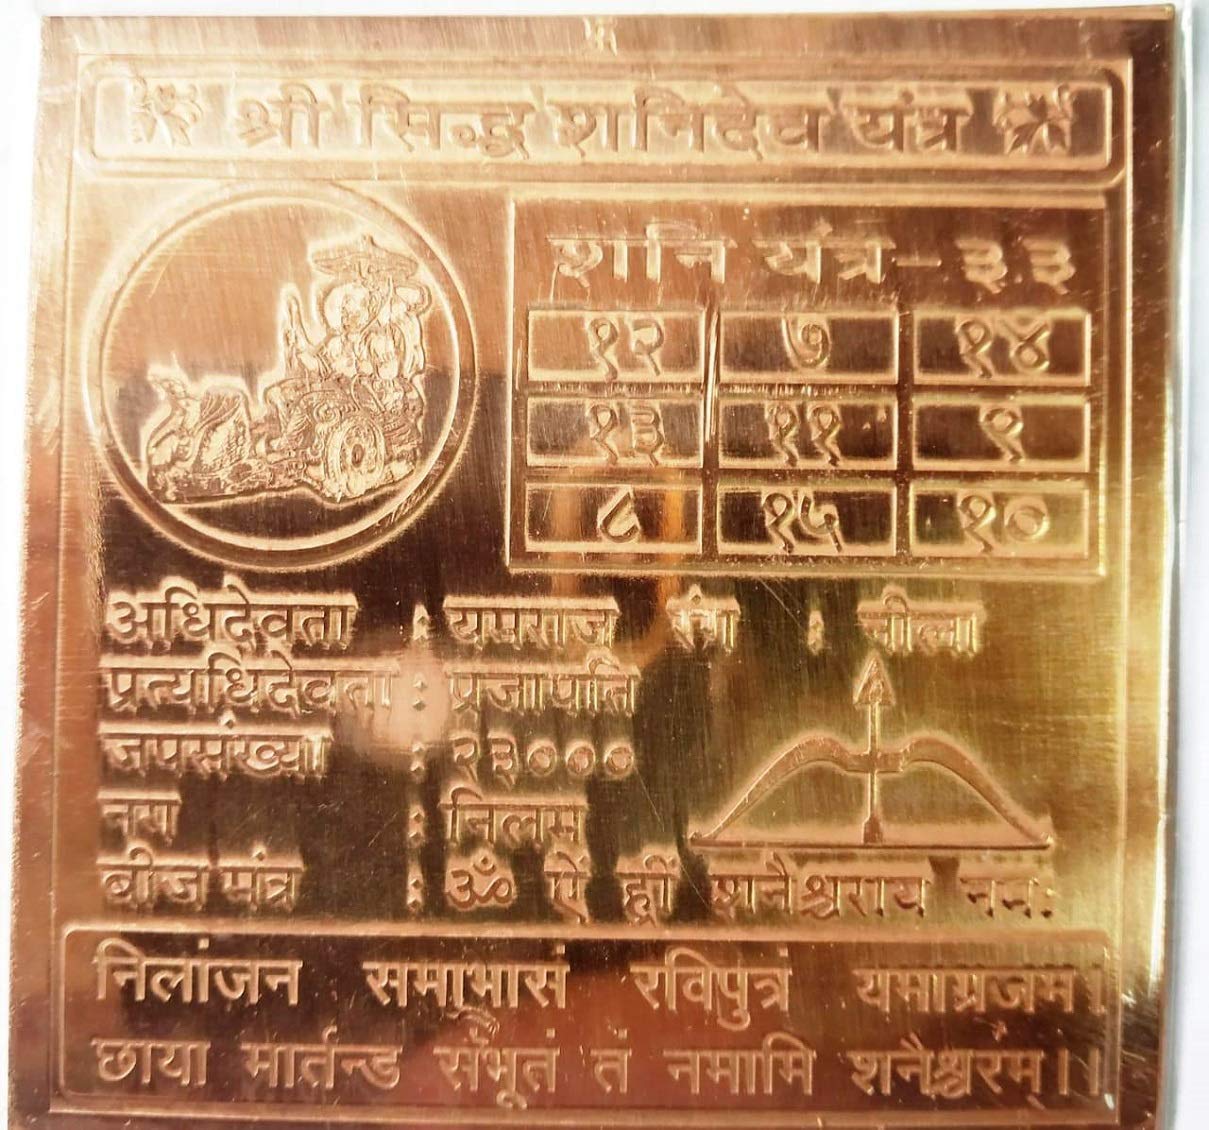 श्री सिद्ध शनिदेव यंत्र
शनि यंत्र - ३३
१२ ७ १४
१३ ११ ९
८ १५ १०
अधिदेवता : यमराज रंग : नीला
प्रत्यधिदेवता : प्रजापति
जपसंख्या : २३०००
नग : निलम
बीज मंत्र : ॐ ऐं ह्रीं शनैश्चराय नमः
निलांजन समाभासं रविपुत्रं यमाग्रजम।
छाया मार्तन्ड संभूतं तं नमामि शनैश्चरंम्।।